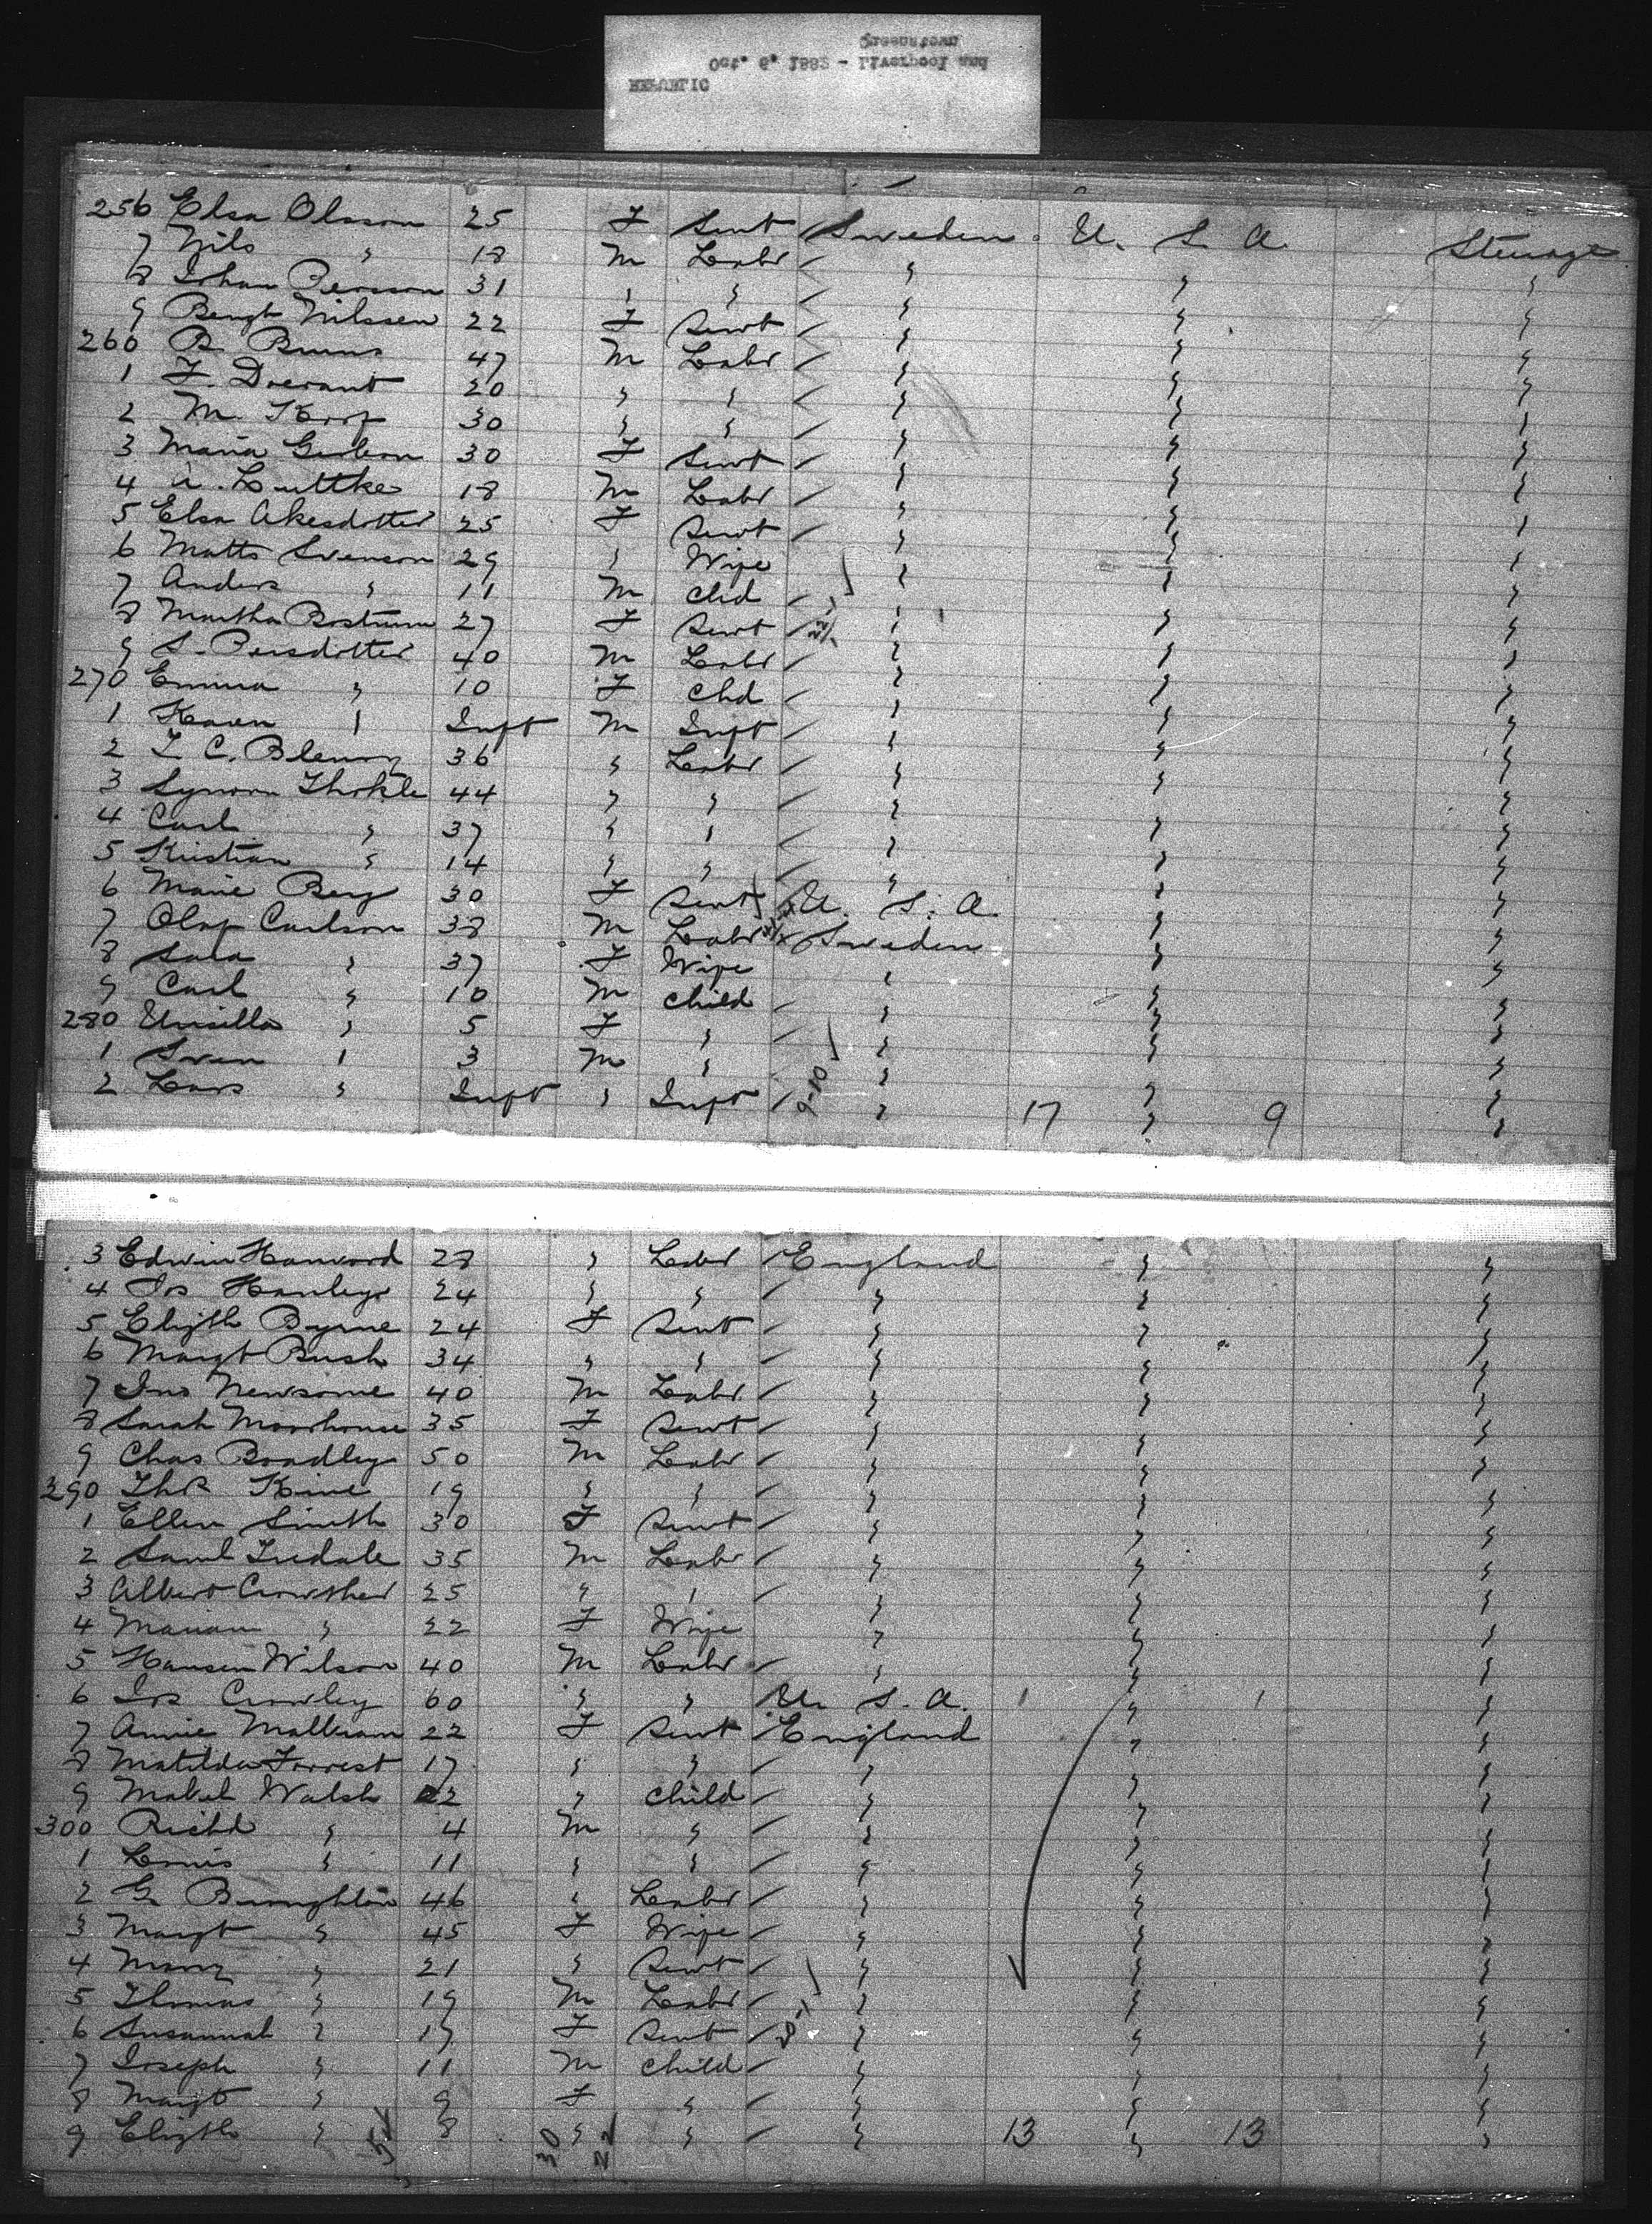 REPUBLIC
Oct. 6, 1882 - Liverpool and
Queenstown
256 Elsa Olsson 25 F Servt Sweden U. S. A. Steerage
7 Nils " 18 M Labr " " "
8 Johan Persson 31 " " " " "
9 Bengt Nilssen 22 F Servt " " "
260 B. Bruns 47 M Labr " " "
1 F. 20 " " " " "
2 M. 30 " " " " "
3 Maria 30 F Servt " " "
4 A. Luttke 18 M Labr " " "
5 Elsa Akesdotter 25 F Servt " " "
6 Matts Svenson 29 " Wife " " "
7 Anders " 11 M Chd " " "
8 Martha Bostrum 27 F Servt " " "
9 S. Persdotter 40 M Labr " " "
270 Emma " 10 F Chd " " "
1 Karen " Inft M Inft " " "
2 36 " Labr " " "
3 44 " " " " "
4 Carl " 37 " " " " "
5 Kristian " 14 " " " " "
6 Marie Berg 30 F Servt U. S. A. " "
7 Olof Carlson 38 M Labr Sweden " "
8 Sara " 37 F Wife " " "
9 Carl " 10 M Child " " "
280 " 5 F " " " "
1 Sven " 3 M " " " "
2 Lars " Inft " Inft 9-10 " 17 " 9 "
3 Edwin 28 " Labr England " "
4 Jos Hanley 24 " " " " "
5 Elizth Byrne 24 F Servt " " "
6 Margt Bush 34 " " " " "
7 Jno Newsome 40 M Labr " " "
8 Sarah Moorhouse 35 F Servt " " "
9 Chas Bradley 50 M Labr " " "
290 Thos 19 " " " " "
1 Ellen Smith 30 F Servt " " "
2 Saml Iredale 35 M Labr " " "
3 Albert Crowther 25 " " " " "
4 Marian " 22 F Wife " " "
5 Wilson 40 M Labr " " "
6 Jos Crowley 60 " " U. S. A. 1 " 1 "
7 Annie 22 F Servt England " "
8 Matilda Forrest 17 " " " " "
9 Mabel Walsh 2 " Child " " "
300 Richd " 4 M " " " "
1 Louis " 11 " " " " "
2 G. Broughton 46 " Labr " " "
3 Margt " 45 F Wife " " "
4 Mary " 21 " Servt " " "
5 Thomas " 19 M Labr " " "
6 Susannah " 17 F Servt " " "
7 Joseph " 11 M Child " " "
8 Margt " 9 F " " " "
9 Elizth " 8 " " " 13 " 13 "
30